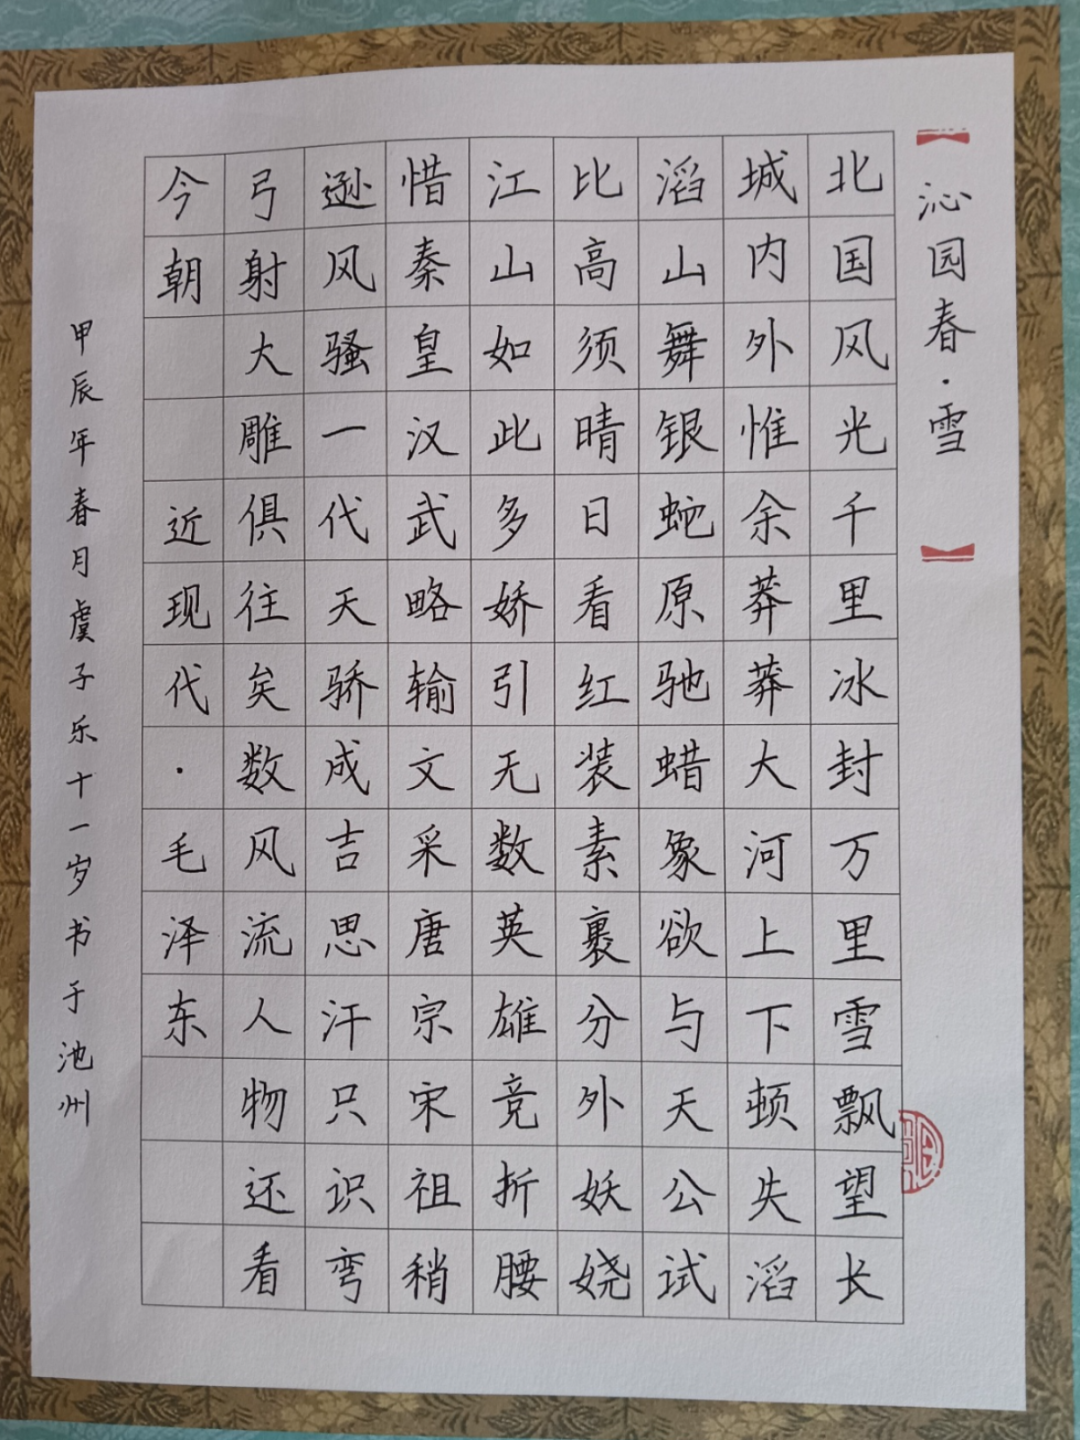 沁园春·雪
北国风光千里冰封万里雪飘望长
城内外惟余莽莽大河上下顿失滔
滔山舞银蛇原驰蜡象欲与天公试
比高须晴日看红装素裹分外妖娆
江山如此多娇引无数英雄竞折腰
惜秦皇汉武略输文采唐宗宋祖稍
逊风骚一代天骄成吉思汗只识弯
弓射大雕俱往矣数风流人物还看
今朝 近现代·毛泽东
甲辰年春月虞子乐十一岁书于池州